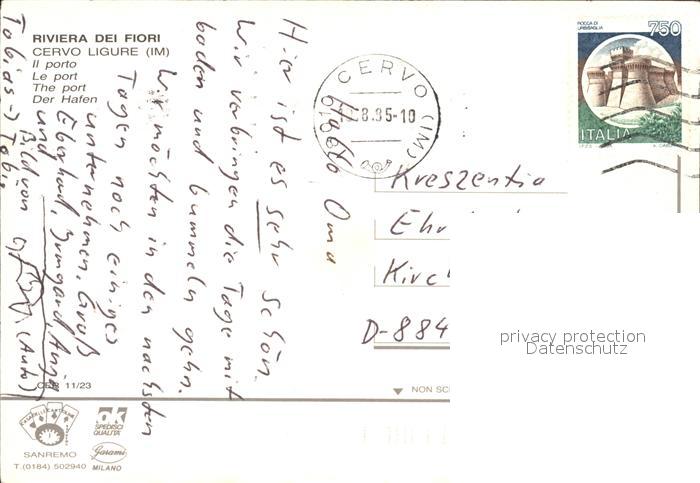 RIVIERA DEI FIORI
CERVO LIGURE (IM)
Il porto
Le port
The port
Der Hafen
Hallo Oma
Hier ist es sehr schön.
Wir verbringen die Tage mit
baden und bummeln gehn.
Wir möchten in den nächsten
Tagen noch einiges
unternehmen. Gruß
Eberhard, Irmgard, Anja
und
Tobias → Bild von (Auto)
Tobi
CERVO (IM)
8.85-10
ROCCA DI
URBISAGLIA
750
ITALIA
Kreszentia
Kirc
D-884
privacy protection
Datenschutz
CER 11/23
NON SC
ok
SPEDISCI
QUALITA'
Garami
SANREMO
MILANO
T.(0184) 502940